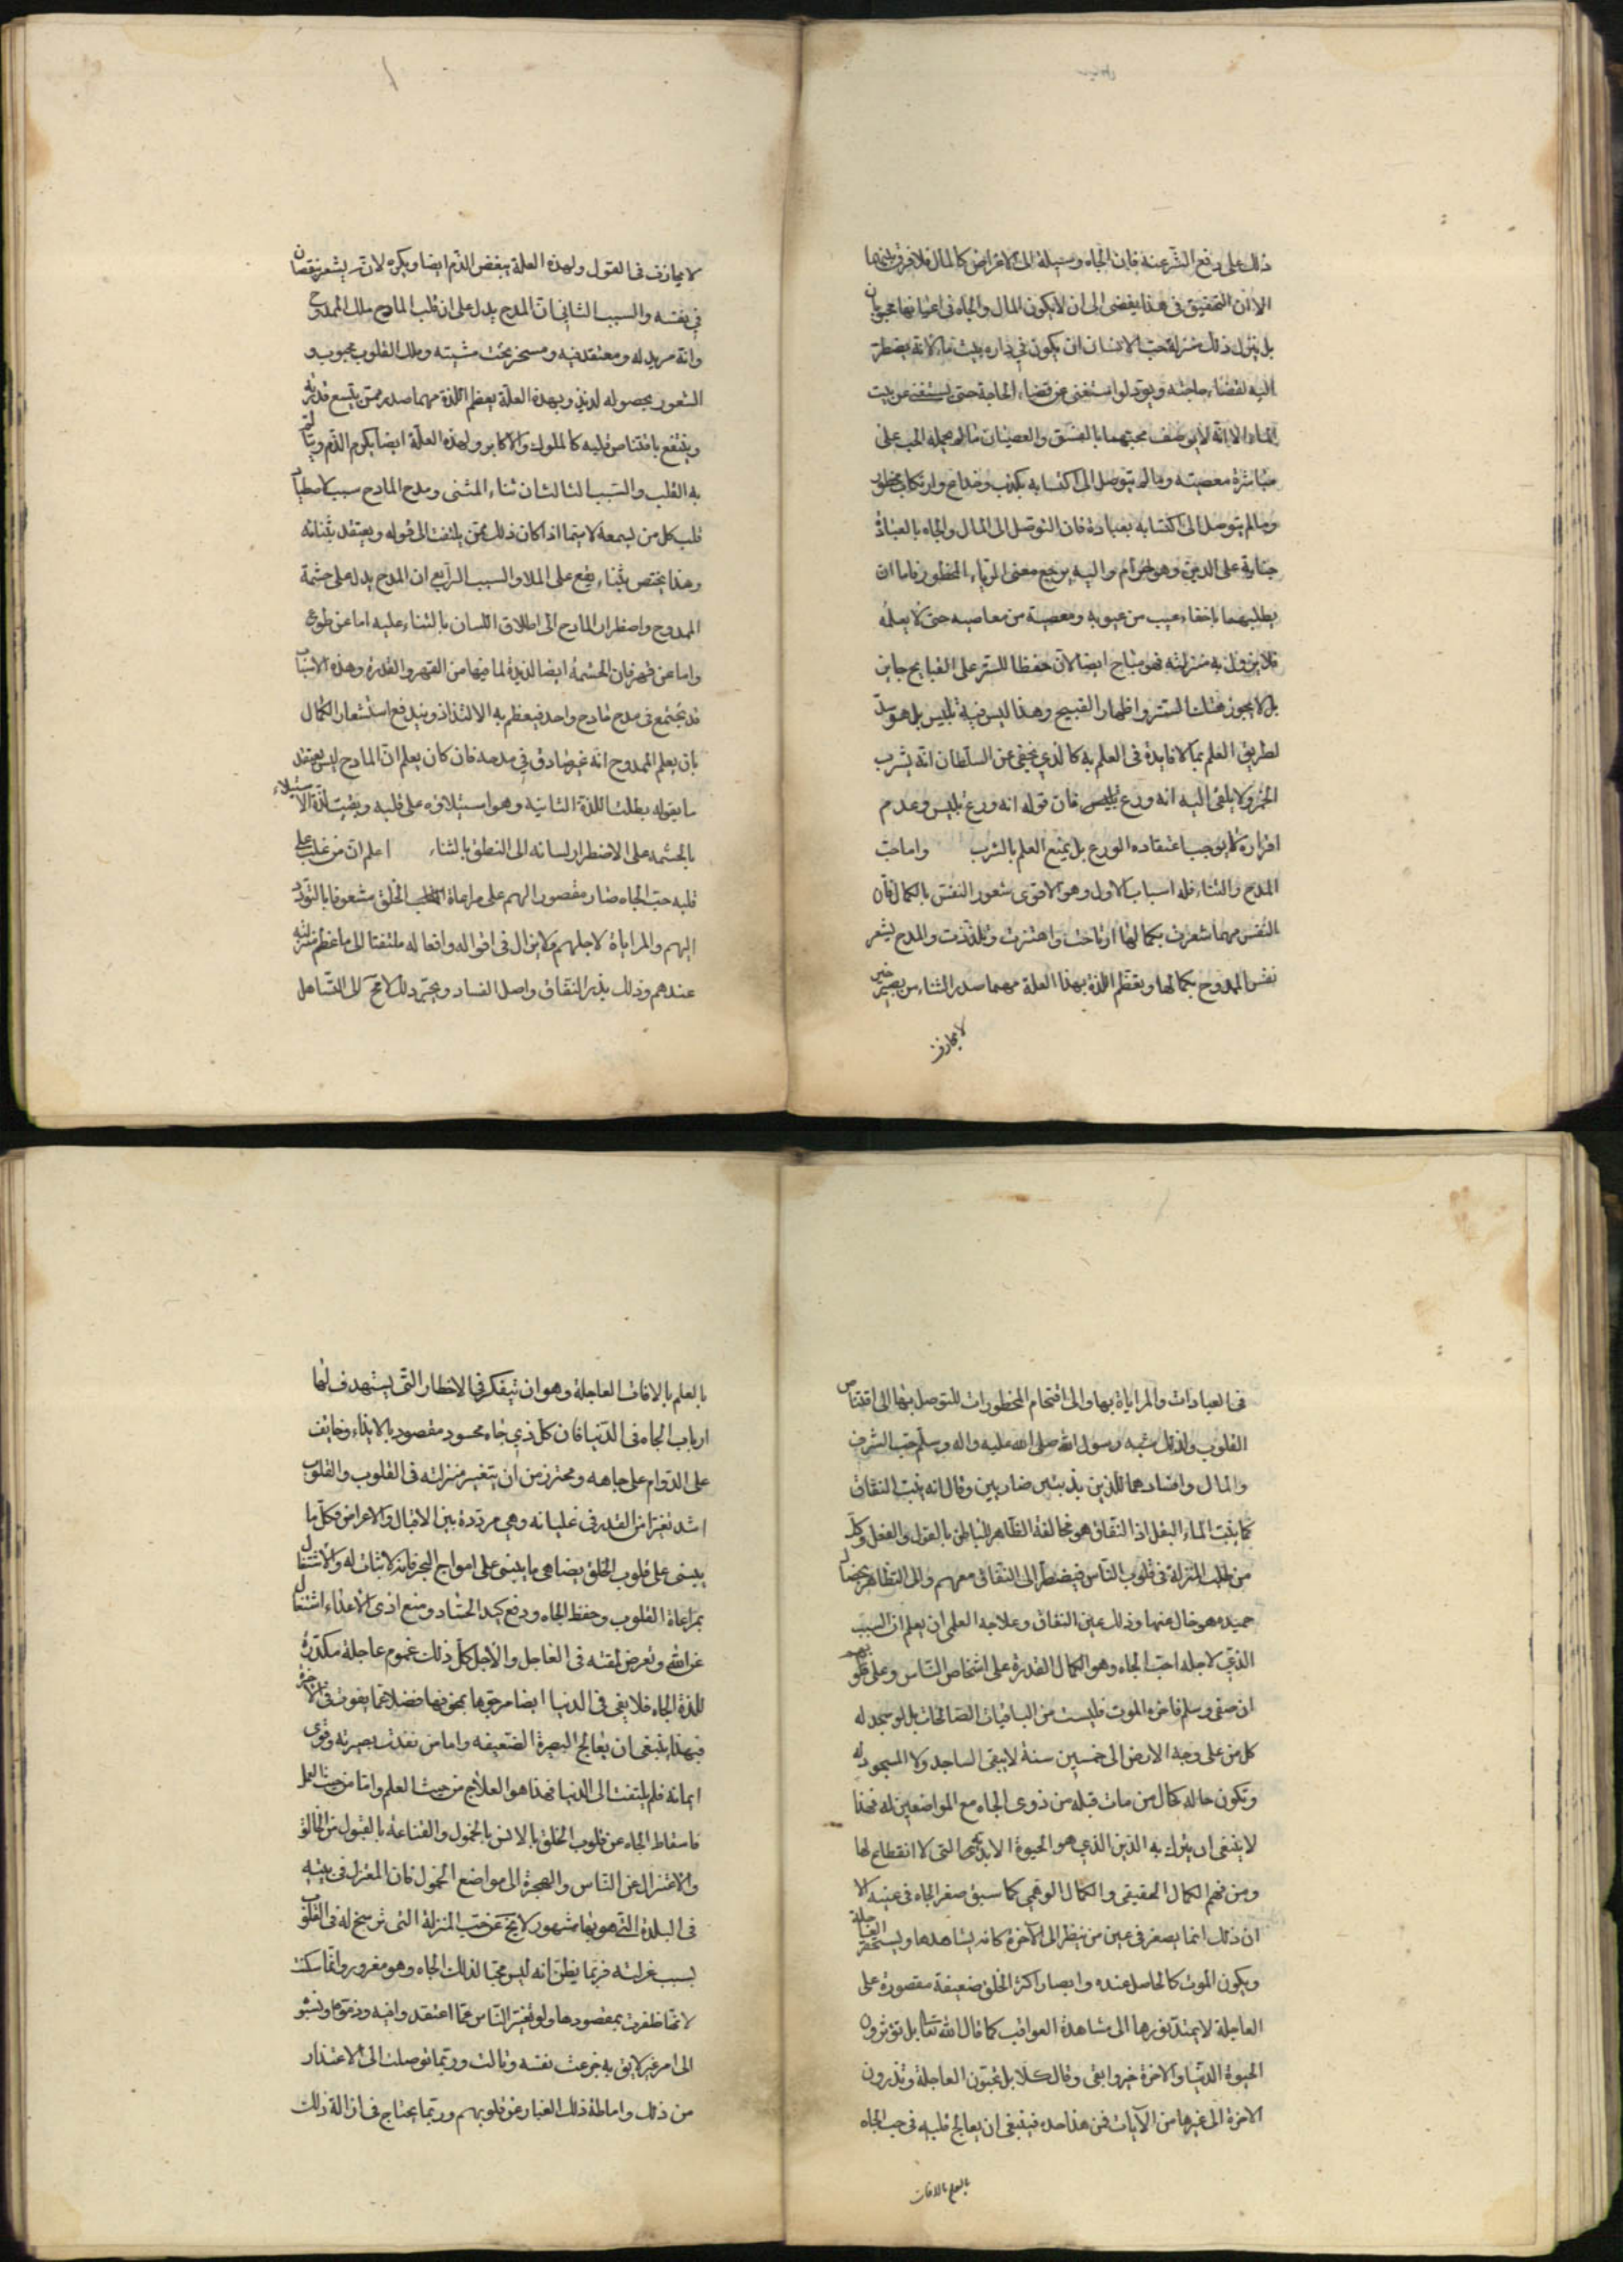 ذلك على دفع الشر عنه فان الجاه وسيلة الى الاغراض كالمال فلا فرق بينهما
الا ان التحقيق فى هذا يفضى الى ان لا يكون المال والجاه فى اعيانهما محبوبان
بل ينزل ذلك منزلة حب الانسان ان يكون في داره بيت ماء لانه يضطر
اليه لقضاء حاجته ويود لو استغنى عن قضاء الحاجة حتى يستغنى عن بيت
الماء الا انه لا يوصف محبتهما بالفسق والعصيان ما لم يحمله الحب على
مباشرة معصيته وما لم يتوصل الى اكتسابه بكذب وخداع وارتكاب محظور
وما لم يتوصل الى اكتسابه بعبادة فان التوصل الى المال والجاه بالعبادة
جناية على الدين وهو حرام واليه يرجع معنى الرياء المحظور فاما ان
يطلبهما باخفاء عيب من عيوبه ومعصية من معاصيه حتى لا يعلم
فلا يزول به منزلته فهو مباح ايضا لان حفظا للستر على القبايح جايز
بل لا يجوز هتك الستر واظهار القبيح وهذا ليس فيه تلبيس بل هو سد
لطريق العلم بما لا فايدة فى العلم به كالذي يخفى عن السلطان انه يشرب
الخمر ولا يلقى اليه انه ورع فان قوله انه ورع تلبيس وعدم
اقراره لا يوجب اعتقاده الورع بل يمنع العلم بالشرب واما حب
المدح والثناء فله اسباب الاول وهو الاقوى شعور النفس بالكمال فان
النفس مهما شعرت بكمالها ارتاحت واهتزت وتلذذت والمدح يشعر
نفس الممدوح بكمالها ويعظم اللذة بهذا العلة مهما صدر الثناء من بصير خبير
لا يجازف
لا يجازف فى القول ولهذه العلة يبغض الذم ايضا ويكره لانه يشعر بنقصان
في نفسه والسبب الثاني ان المدح يدل على ان قلب المادح ملك الممدوح
وانه مريد له ومعتقد فيه ومسخر تحت مشيته وملك القلوب محبوب و
الشعور بحصوله لذيذ وبهذه العلة يعظم اللذة مهما صدر ممن يتسع قدرته
وينتفع باقتناص قلبه كالملوك والاكابر ولهذه العلة ايضا يكره الذم ويتالم
به القلب والسبب الثالث ان ثناء المثنى ومدح المادح سبب لاصطياد
قلب كل من يسمعه لا سيما اذا كان ذلك ممن يلتفت الى قوله ويعتقد بثنائه
وهذا يختص بثناء يقع على الملا والسبب الرابع ان المدح يدل على حشمة
الممدوح واضطرار المادح الى اطلاق اللسان بالثناء عليه اما عن طوع
واما عن قهر فان الحشمة ايضا لذيذة لما فيها من القهر والقدرة وهذه الاسباب
قد تجتمع فى مدح مادح واحد فيعظم به الالتذاذ ويندفع استشعار الكمال
بان يعلم الممدوح انه غير صادق في مدحه فان كان يعلم ان المادح ليس يعتقد
ما يقوله بطلت اللذة الثانية وهو استيلاؤه على قلبه وبقيت لذة الاستيلاء
بالحشمة على الاضطرار لسانه الى النطق بالثناء اعلم ان من غلب على
قلبه حب الجاه صار مقصور الهم على مراعاة الخلق مشعوفا بالتودد
اليهم والمراياة لاجلهم ولا يزال فى اقواله وافعاله ملتفتا الى ما عظم منزلته
عندهم وذلك بذر النفاق واصل الفساد ويجر ذلك لا مح الى التساهل
فى العبادات والمراياة بها والى اقتحام المحظورات للتوصل بها الى اقتناص
القلوب ولذلك شبه رسول الله صلى الله عليه واله وسلم حب الشرف
والمال وافسادهما للدين بذئبين ضاريين وقال انه ينبت النفاق
كما ينبت الماء البقل اذ النفاق هو مخالفة الظاهر للباطن بالقول والفعل وكل
من طلب المنزلة فى قلوب الناس فيضطر الى النفاق معهم والى التظاهر بخصال
حميدة هو خال عنها وذلك عين النفاق وعلاجه العلمى ان يعلم ان السبب
الذي لاجله احب الجاه وهو الكمال القدرة على اشخاص الناس وعلى قلوبهم
ان صفى وسلم فاخره الموت فليست من الباقيات الصالحات بل لو سجد له
كل من على وجه الارض الى خمسين سنة لا يبقى الساجد ولا المسجود له
وتكون حاله كحال من مات قبله من ذوى الجاه مع المواضعين له فهذا
لا ينبغى ان يترك به الدين الذي هو الحيوة الابدية التى لا انقطاع لها
ومن فهم الكمال الحقيقى والكمال الوهمي كما سبق صغر الجاه فى عينه الا
ان ذلك انما يصغر فى عين من ينظر الى الآخرة كانه يشاهدها ويستحقر العاجلة
ويكون الموت كالحاصل عنده وابصار اكثر الخلق ضعيفة مقصورة على
العاجلة لا يمتد نورها الى مشاهدة العواقب كما قال الله تعا بل تؤثرون
الحيوة الدنيا والاخرة خير وابقى وقال كلا بل تحبون العاجلة وتذرون
الاخرة الى غيرها من الآيات فمن هذا حده فينبغى ان يعالج قلبه فى حب الجاه
بالعلم بالافات
بالعلم بالافات العاجلة وهو ان يتفكر فى الاخطار التى يستهدف لها
ارباب الجاه فى الدنيا فان كل ذي جاه محسود مقصود بالايذاء وخايف
على الدوام على جاهه ومحترز من ان يتغير منزلته فى القلوب والقلوب
اشد تغيرا من القدر فى غليانه وهي مرددة بين الاقبال والاعراض فكل ما
يبتنى على قلوب الخلق يضاهي ما يبتنى على امواج البحر فانه لا ثبات له والاشتغال
بمراعاة القلوب وحفظ الجاه ودفع كيد الحساد ومنع اذى الاعداء اشتغال
عن الله وتعرض لمقته فى العاجل والآجل كل ذلك غموم عاجلة مكدرة
للذة الجاه فلا يفى فى الدنيا ايضا مرجوها بمخوفها فضلا عما يفوت فى الآخرة
فبهذا ينبغى ان يعالج البصيرة الضعيفه واما من نفذت بصيرته وقوى
ايمانه فلم يلتفت الى الدنيا فهذا هو العلاج من حيث العلم واما من حيث العمل
فاسقاط الجاه عن قلوب الخلق بالانس بالخمول والقناعة بالقبول من الخالق
والاعتزال عن الناس والهجرة الى مواضع الخمول فان المعتزل فى بيته
فى البلدة التى هو بها مشهور لا يخ عن حب المنزلة التى ترسخ له فى القلوب
بسبب عزلته فربما يظن انه ليس محبا لذلك الجاه وهو مغرور وانما سكنت
لانها ظفرت بمقصودها ولو تغير الناس عما اعتقدوا فيه وذموه ونسبوه
الى امر غير لايق به جزعت نفسه وتالمت وربما توصلت الى الاعتذار
من ذلك واماطة ذلك الغبار عن قلوبهم وربما يحتاج فى ازالة ذلك